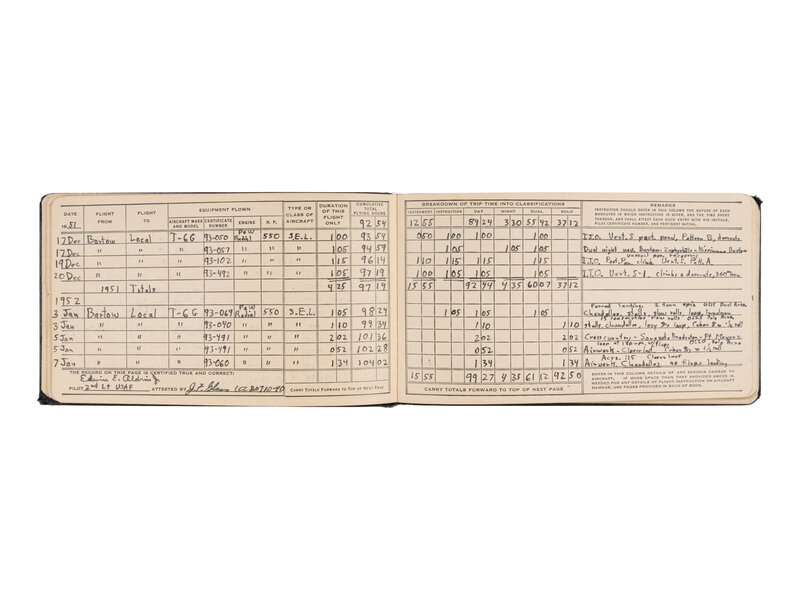 DATE FLIGHT FROM FLIGHT TO EQUIPMENT FLOWN TYPE OR CLASS OF AIRCRAFT DURATION OF THIS FLIGHT ONLY CUMULATIVE TOTAL FLYING HOURS
AIRCRAFT MAKE AND MODEL CERTIFICATE NUMBER ENGINE H. P.
1951 92 54
17 Dec Bartow Local T-6G 93-050 P&W Radial 550 S.E.L. 1 00 93 54
17 Dec " " " 93-057 " " " 1 05 94 59
19 Dec " " " 93-102 " " " 1 15 96 14
20 Dec " " " 93-492 " " " 1 05 97 19
1951 Totals 4 25 97 19
1952
3 Jan Bartow Local T-6G 93-069 P&W Radial 550 S.E.L. 1 05 98 24
3 Jan " " " 93-040 " " " 1 10 99 34
5 Jan " " " 93-491 " " " 2 02 101 36
5 Jan " " " 93-491 " " " 0 52 102 28
7 Jan " " " 93-060 " " " 1 34 104 02
THE RECORD ON THIS PAGE IS CERTIFIED TRUE AND CORRECT:
Edwin E. Aldrin Jr
PILOT 2nd Lt USAF ATTESTED BY CARRY TOTALS FORWARD TO TOP OF NEXT PAGE
BREAKDOWN OF TRIP TIME INTO CLASSIFICATIONS REMARKS
INSTRUMENT INSTRUCTION DAY NIGHT DUAL SOLO
INSTRUCTOR SHOULD ENTER IN THIS COLUMN THE NATURE OF EACH
MANEUVER IN WHICH INSTRUCTION IS GIVEN, AND THE TIME SPENT
THEREON, AND SHALL ATTEST EACH SUCH ENTRY WITH HIS INITIALS,
PILOT CERTIFICATE NUMBER, AND PERTINENT RATING.
12 55 89 24 3 30 55 42 37 12
0 50 1 00 1 00 1 00 I.T.O. Vert. S Pattern B, descents
1 05 1 05 1 05 Dual night nav. Bartow - Zephyrhills - Bartow
1 10 1 15 1 15 1 15 I.T.O. climb Vert. S. Patt. A.
1 00 1 05 1 05 1 05 I.T.O. Vert. S-1. climbs & descents,
15 55 92 44 4 35 60 07 37 12
Forced landing,
1 05 1 05 1 05 Chandelles, stalls, slow rolls, loop,
1 10 1 10 stalls, chandelles, lazy 8s loop, Cuban 8 & ½ roll
2 02 2 02 Cross country - Sarasota Bradenton - Ft Meyers
0 52 0 52 Airwork - Cloverleaf, Cuban 8s & ½ roll
1 34 1 34 Airwork, Chandelles no flaps landing
15 55 99 27 4 35 61 12 42 50
CARRY TOTALS FORWARD TO TOP OF NEXT PAGE
ENTER IN THIS COLUMN DETAILS OF ANY SERIOUS DAMAGE TO
AIRCRAFT. IF MORE SPACE THAN THAT PROVIDED ABOVE IS
NEEDED FOR ANY DETAILS OF FLIGHT INSTRUCTION OR AIRCRAFT
DAMAGE, USE PAGES PROVIDED IN BACK OF BOOK.